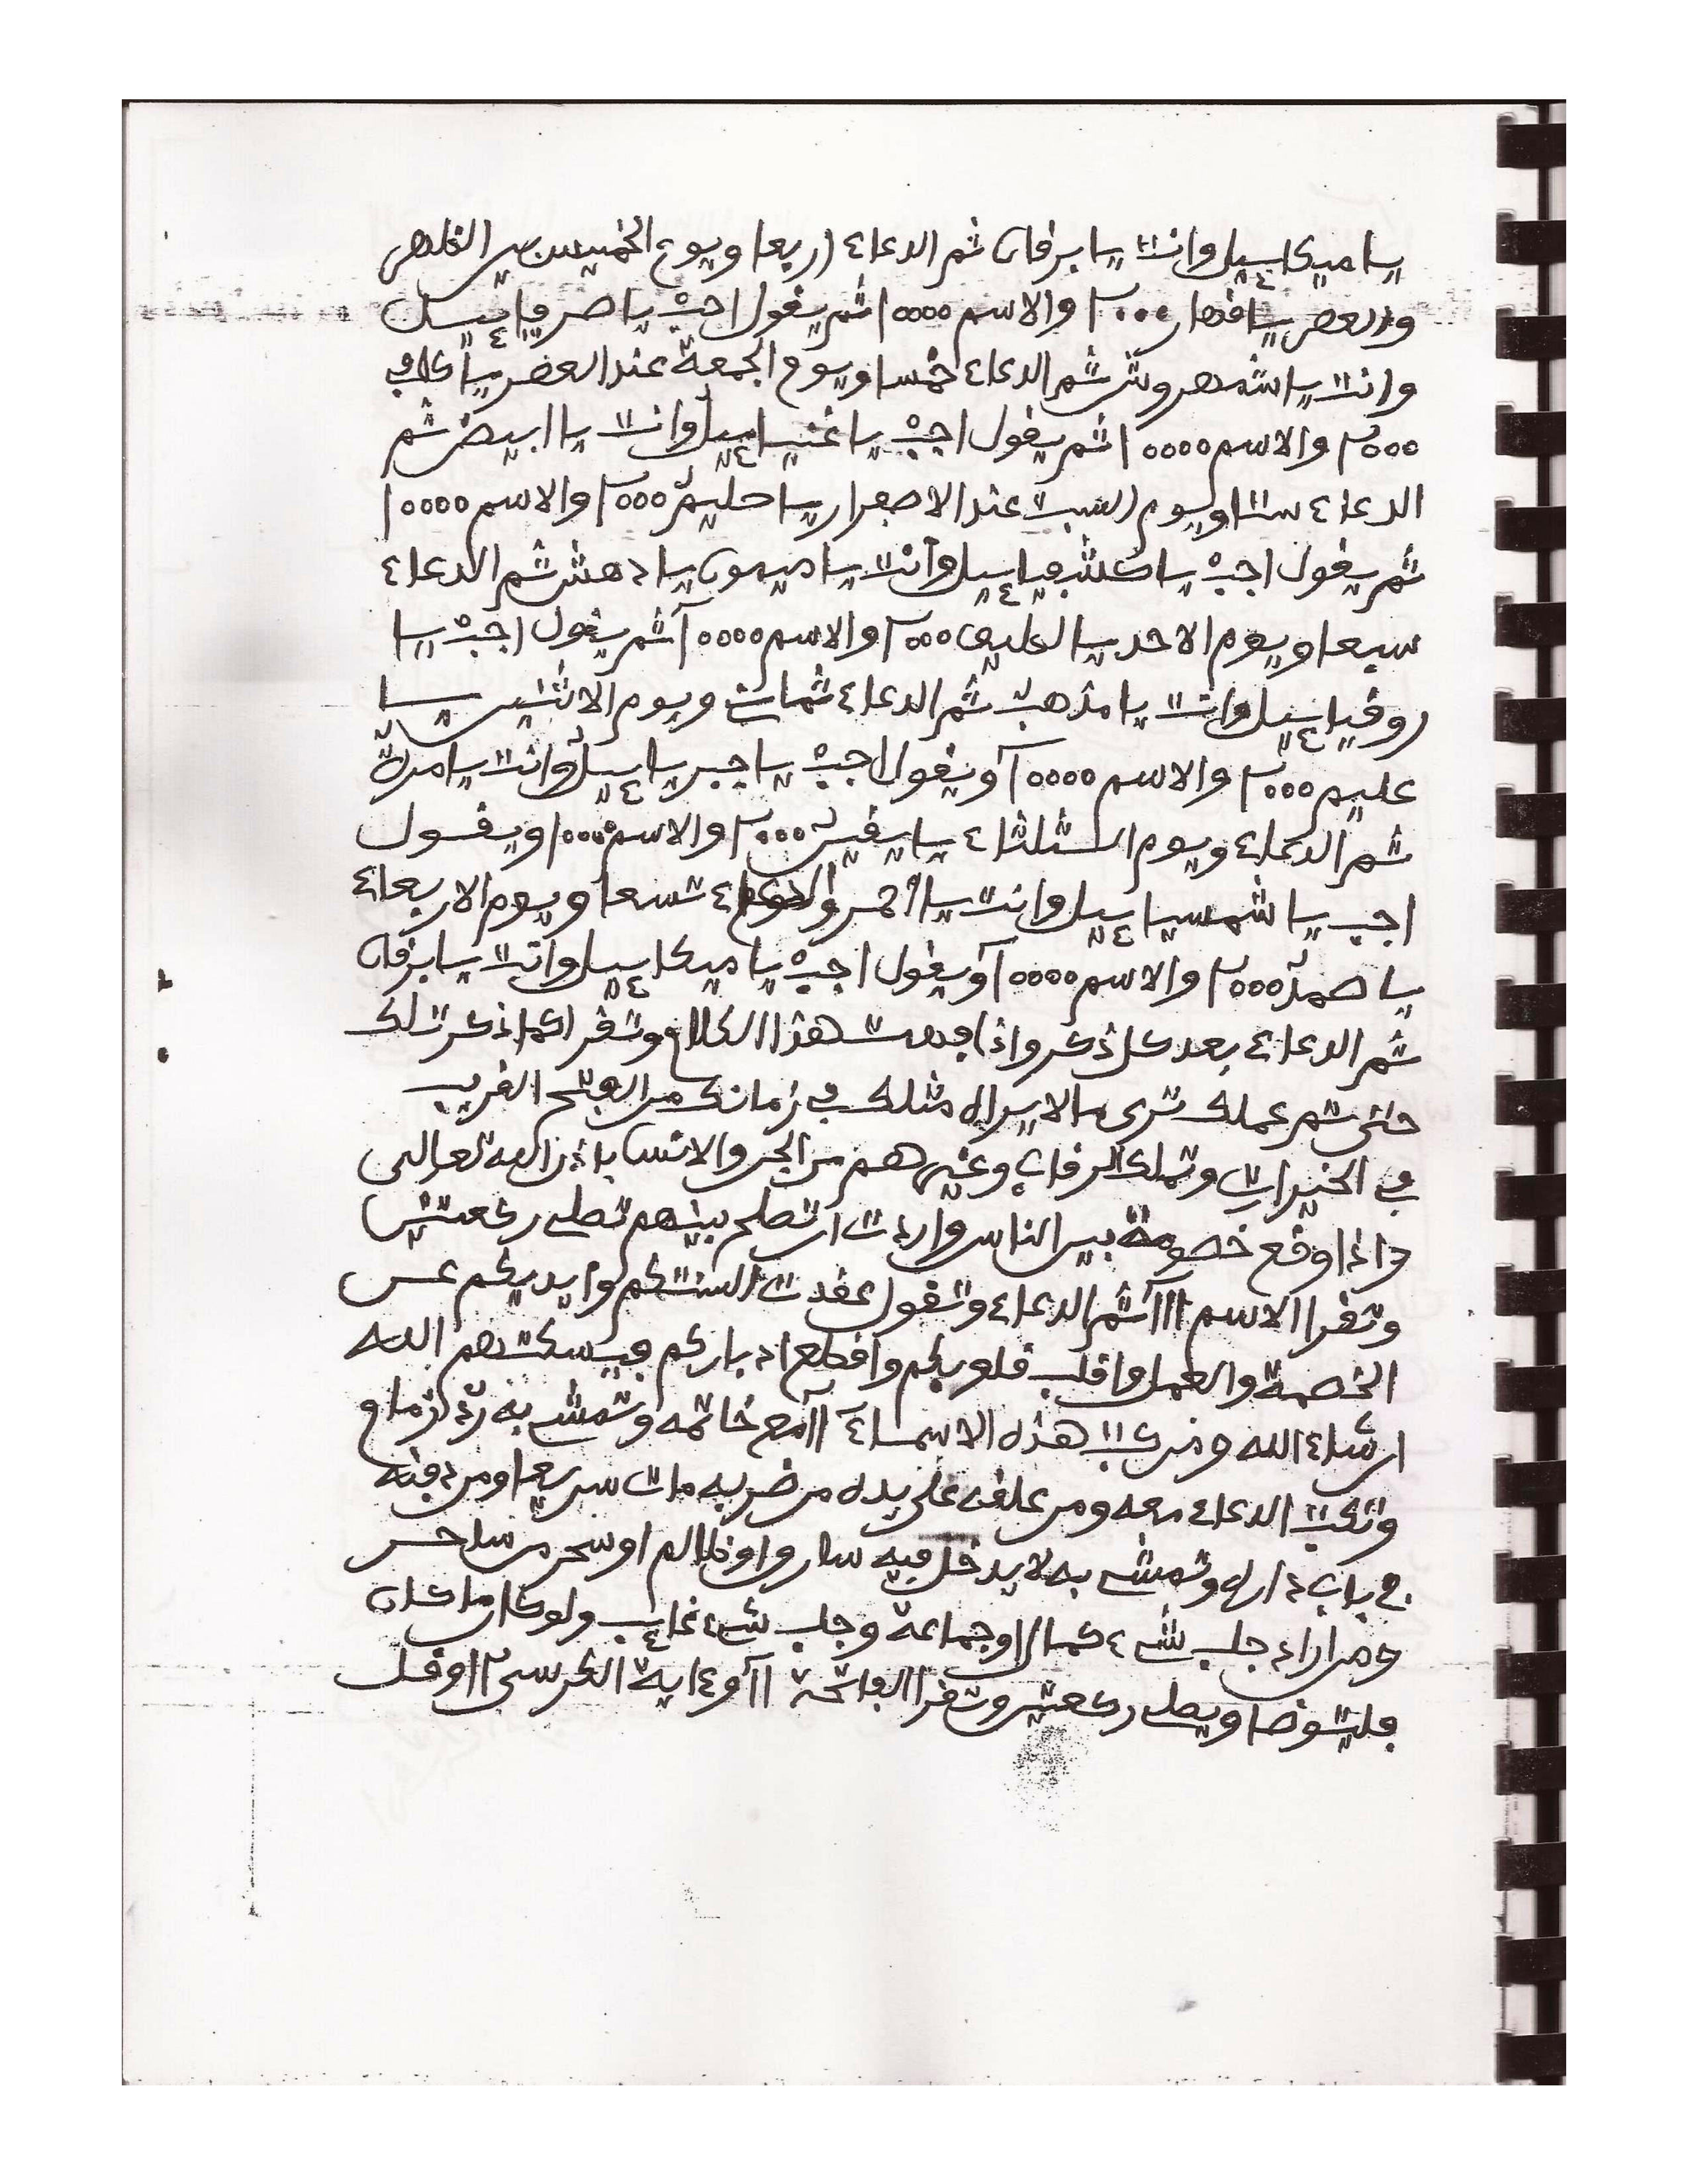 يا ميكاييل وانت يا برقان ثم الدعاء اربعا ويوم الخميس بين الظهر
والعصر يا قهار ٢٠٠٠ والاسم ١٠٠٠٠ ثم يقول اجب يا صرفياييل
وانت يا شمهروش ثم الدعاء خمسا ويوم الجمعة عند العصر يا كافي
٢٠٠٠ والاسم ١٠٠٠٠ ثم يقول اجب يا عنياييل وانت يا ابيض ثم
الدعاء ستا ويوم السبت عند الاصفرار يا حليم ٢٠٠٠ والاسم ١٠٠٠٠
ثم يقول اجب يا كشفياييل وانت يا ميمون يا دهش ثم الدعاء
سبعا ويوم الاحد يا ٢٠٠٠ والاسم ١٠٠٠٠ ثم يقول اجب يا
روقياييل وانت يا مذهب ثم الدعاء ثمان ويوم الاثنين يا
عليم ٢٠٠٠ والاسم ١٠٠٠٠ ويقول اجب يا جبرياييل وانت يا مرة
ثم الدعاء ويوم الثلثاء يا ٢٠٠٠ والاسم ١٠٠٠ ويقول
اجب يا شمسياييل وانت يا أحمر والدعاء تسعا ويوم الاربعاء
يا صمد ٢٠٠٠ والاسم ١٠٠٠٠ ويقول اجب يا ميكاييل وانت يا برقان
ثم الدعاء بعد كل ذكر واذا فهمت هذا الكلام وتقرا كما ذكرت لك
حتى تم عملك ترى ما لا يراه مثلك في زمانك من الفتح القريب
في الخيرات وتملك الرقاب وغيرهم من الجن والانس باذن الله تعالى
واذا وقع خصومة بين الناس واردت ان تصلح بينهم تصلي ركعتين
وتقرا الاسم ١١١ ثم الدعاء وتقول عقدت السنتكم وايديكم عن
الخصمة والعمل واقلب قلوبكم واقطع ادباركم فيسكتهم الله
ان شاء الله ومن كتب هذه الاسماء ١١ مع خاتمه وتمشي به
وتكتب الدعاء معه ومن علقه على يده من ضربه مات سريعا ومن دفنه
في باب داره وتمشي به لا يدخل فيه سارق او ظالم او سحر من ساحر
ومن اراد جلب شيء كمال او جماعة وجلب شيء غايب ولو كان ما كان
فليتوضا ويصلي ركعتين وتقرا الفاتحة ١١ وءاية الكرسي ١١ وقل